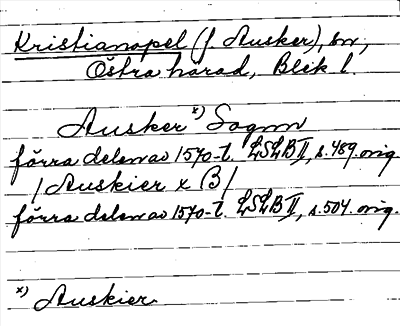 Kristianopel (f. Ausker), sn,
Östra härad, Blek l.
Ausker x) Sognn
förra delen av 1570-t. LSLB II, s. 489. orig
/ Auskier x B /
förra delen av 1570-t. LSLB II, s. 504. orig.
x) Auskier